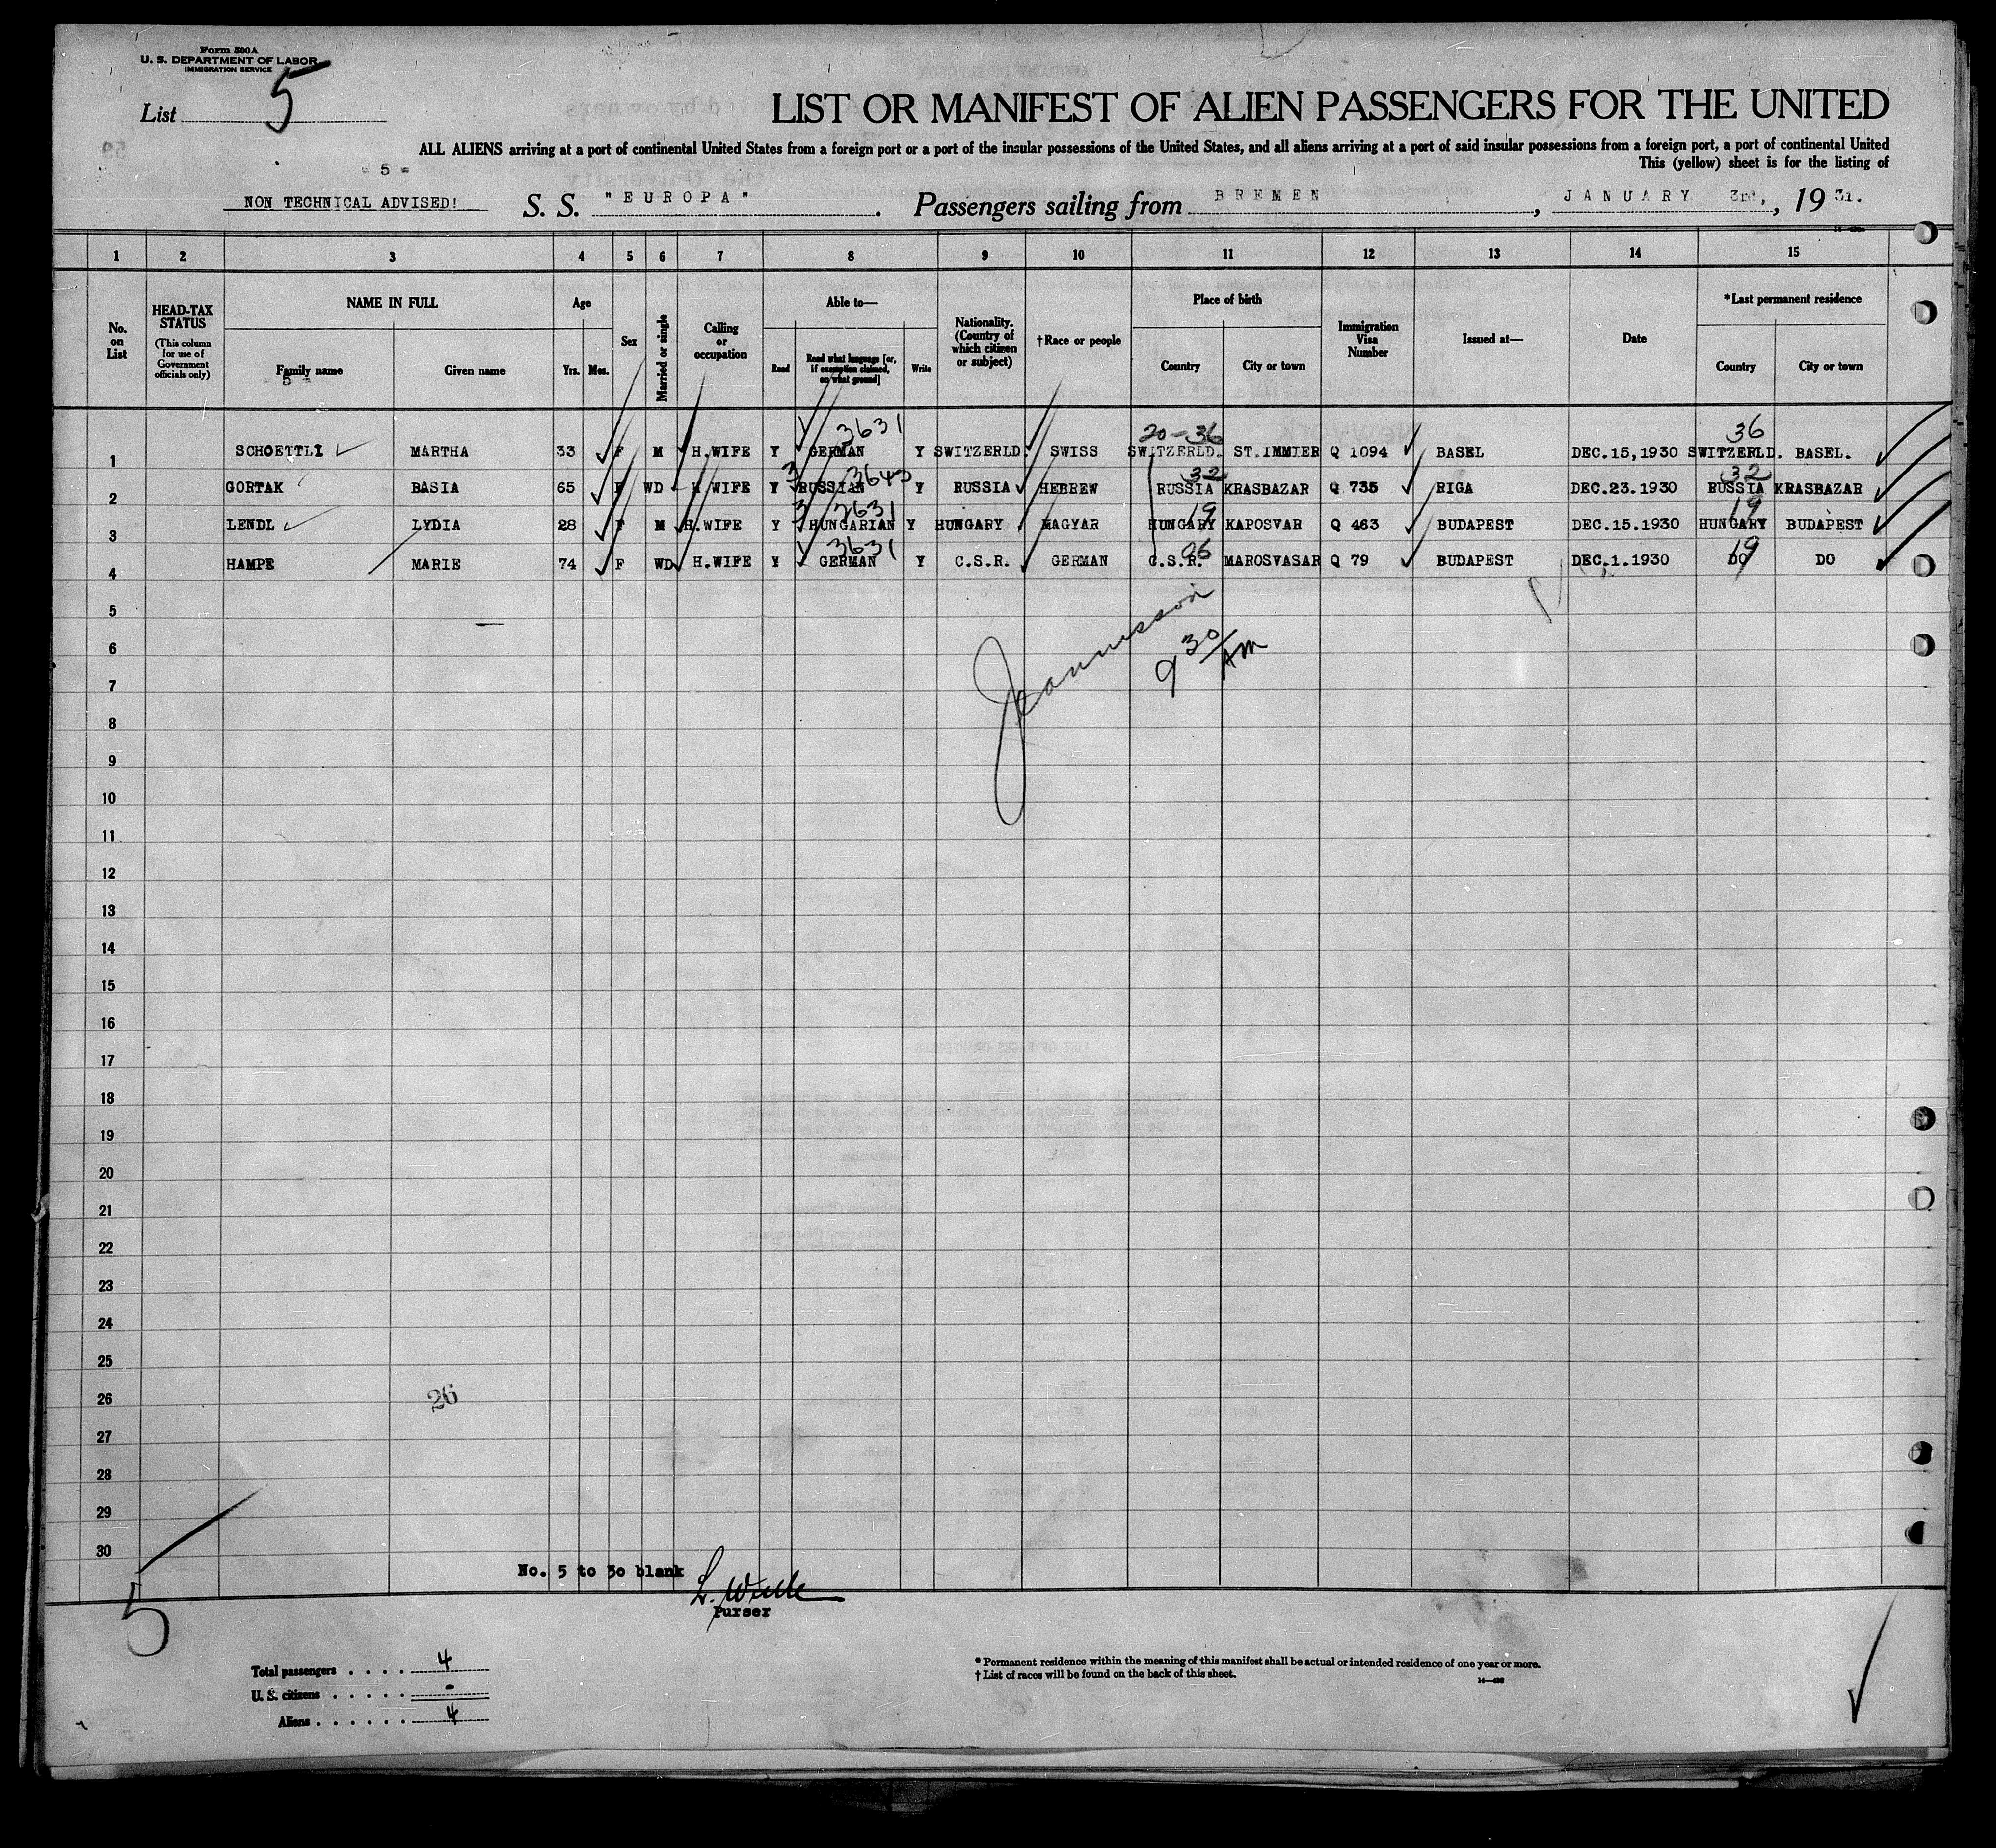 Form 500A
U. S. DEPARTMENT OF LABOR
IMMIGRATION SERVICE
List 5
LIST OR MANIFEST OF ALIEN PASSENGERS FOR THE UNITED
ALL ALIENS arriving at a port of continental United States from a foreign port or a port of the insular possessions of the United States, and all aliens arriving at a port of said insular possessions from a foreign port, a port of continental United
This (yellow) sheet is for the listing of
- 5 =
NON TECHNICAL ADVISED! S. S. "EUROPA". Passengers sailing from BREMEN, JANUARY 3rd, 1931.
1 2 3 4 5 6 7 8 9 10 11 12 13 14 15
No. on List
HEAD-TAX STATUS (This column for use of Government officials only)
NAME IN FULL
Family name
Given name
5
Age
Yrs. Mos.
Sex
Married or single
Calling or occupation
Able to—
Read
Read what language [or, if exemption claimed, on what ground]
Write
Nationality. (Country of which citizen or subject)
†Race or people
Place of birth
Country
City or town
Immigration Visa Number
Issued at—
Date
*Last permanent residence
Country
City or town
3631 20-36 36
1 SCHOETTLI MARTHA 33 F M H.WIFE Y GERMAN Y SWITZERLD. SWISS SWITZERLD. ST.IMMIER Q 1094 BASEL DEC.15,1930 SWITZERLD. BASEL.
3 3643 32 32
2 GORTAK BASIA 65 F WD H.WIFE Y RUSSIAN Y RUSSIA HEBREW RUSSIA KRASBAZAR Q 735 RIGA DEC.23.1930 RUSSIA KRASBAZAR
3 3631 19 19
3 LENDL LYDIA 28 F M H.WIFE Y HUNGARIAN Y HUNGARY MAGYAR HUNGARY KAPOSVAR Q 463 BUDAPEST DEC.15.1930 HUNGARY BUDAPEST
3631 06 19
4 HAMPE MARIE 74 F WD H.WIFE Y GERMAN Y C.S.R. GERMAN C.S.R. MAROSVASAR Q 79 BUDAPEST DEC.1.1930 DO DO
5
6
9 30 AM
7
8
9
10
11
12
13
14
15
16
17
18
19
20
21
22
23
24
25
26 26
27
28
29
30
No. 5 to 30 blank
Purser
5
Total passengers . . . . 4
U. S. citizens . . . . . -
Aliens . . . . . . 4
* Permanent residence within the meaning of this manifest shall be actual or intended residence of one year or more.
† List of races will be found on the back of this sheet.